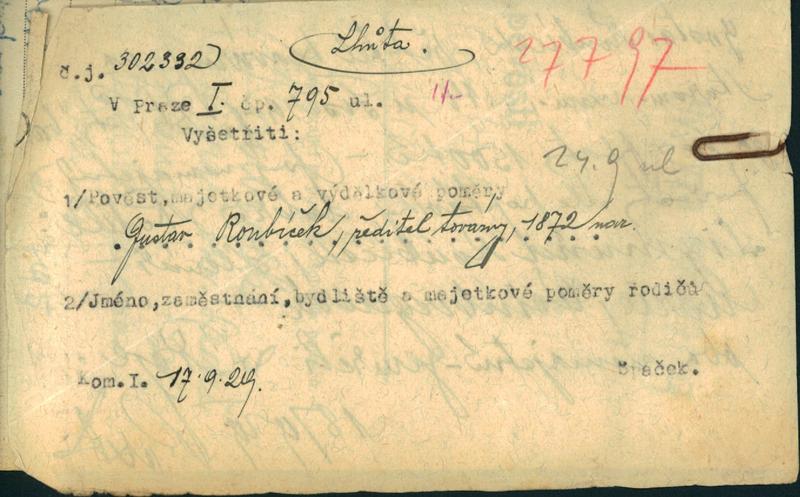 Lhůta.
27797
č.j. 302332
V Praze I. čp. 795 ul.
Vyšetřiti:
24.9
1/Pověst,majetkové a výdělkové poměry
Gustav Roubíček, ředitel továrny, 1872 nar.
2/Jméno,zaměstnání,bydliště a majetkové poměry rodičů
Kom.I. 17.9.29.
Špaček.